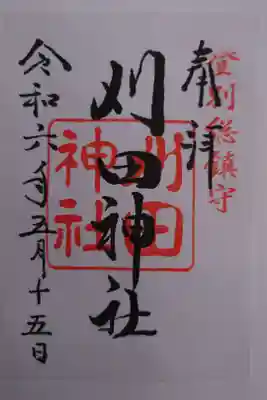 登別総鎮守
奉拝
刈田神社
刈田神社
令和六年五月十五日